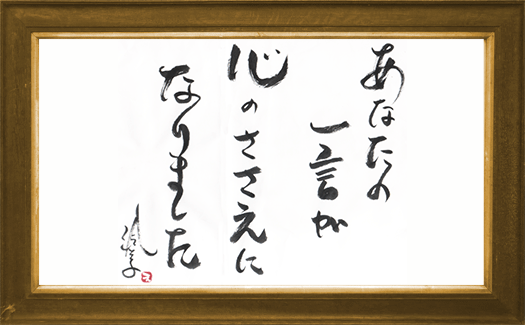 あなたの
一言が
心のささえに
なりました